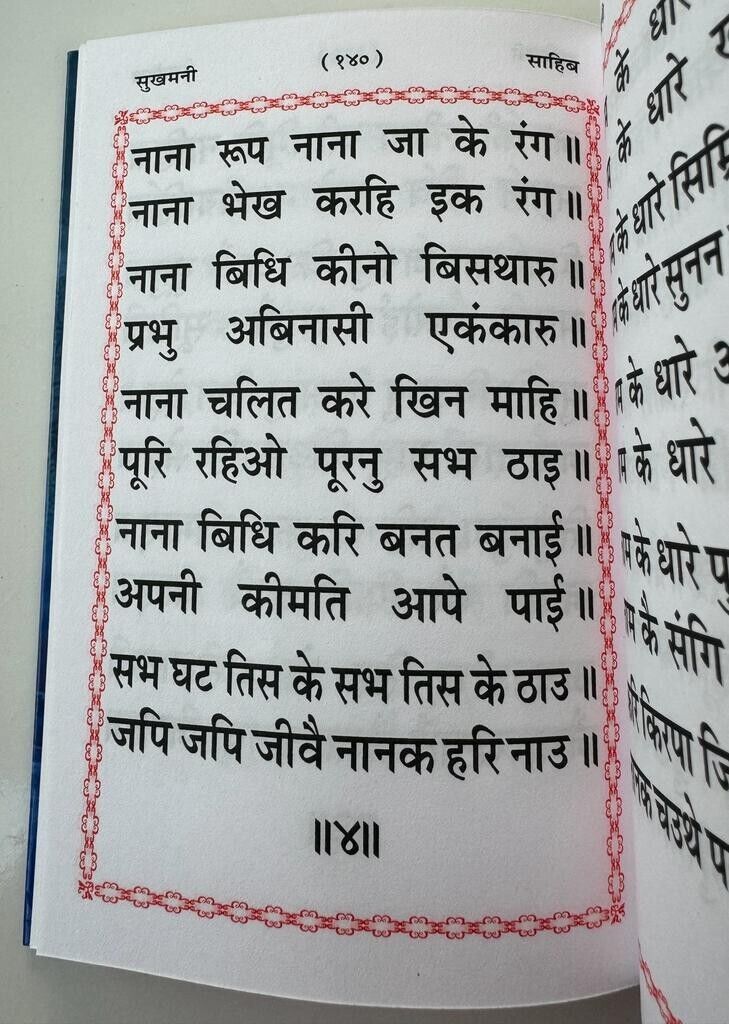 सुखमनी (१४०) साहिब
नाना रूप नाना जा के रंग॥
नाना भेख करहि इक रंग॥
नाना बिधि कीनो बिसथारु॥
प्रभु अबिनासी एकंकारु॥
नाना चलित करे खिन माहि॥
पूरि रहिओ पूरनु सभ ठाइ॥
नाना बिधि करि बनत बनाई॥
अपनी कीमति आपे पाई॥
सभ घट तिस के सभ तिस के ठाउ॥
जपि जपि जीवै नानक हरि नाउ॥
॥४॥
के धारे
के धारे
के धारे सिम्रि
के धारे सुनन
के धारे
के धारे
के धारे
कै संगि
किरपा
चउथे